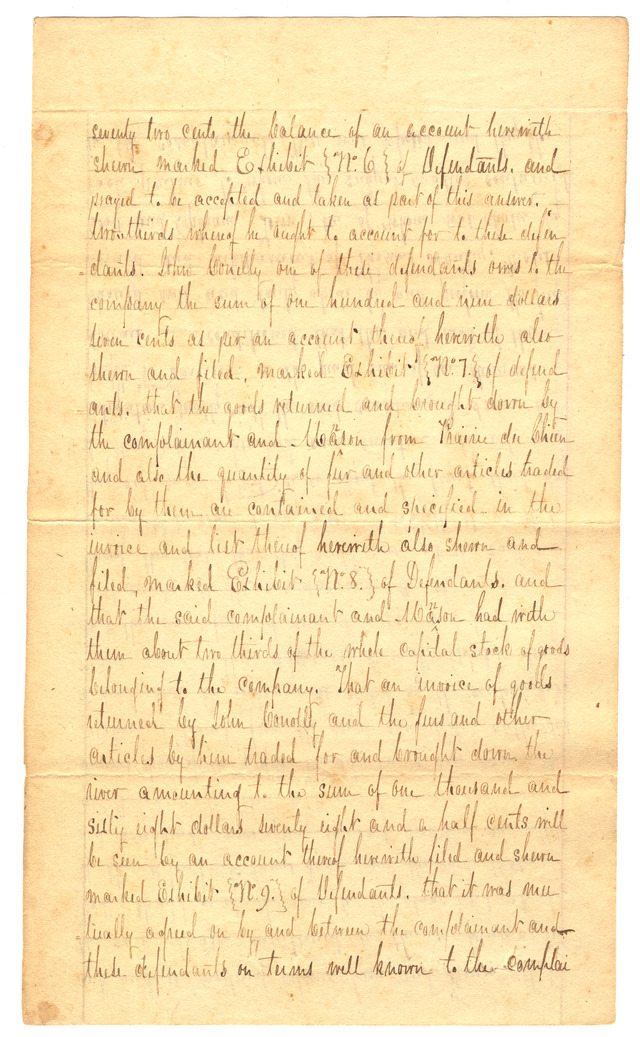 seventy two cents the balance of an account herewith
shewn marked Exhibit {No. 6} of Defendants. and
prayed to be accepted and taken as part of this answer.
two thirds whereof he aught to account for to these defen
dants. John Conelly one of these defendants owes to the
company the sum of one hundred and nine dollars
seven cents as per an account thereof herewith also
shewn and filed, marked Exhibit {No. 7.} of defend
ants. that the goods returned and brought down by
the complainant and Mattson from Prairie du Chien
and also the quantity of fur and other articles traded
for by them are contained and specified in the
invoice and list thereof herewith also shewn and
filed, marked Exhibit {No. 8.} of Defendants. and
that the said complainant and had with
them about two thirds of the whole capital stock of goods
belonging to the company. That an invoice of goods
returned by John Conolly and the furs and other
articles by him traded for and brought down the
river amounting to the sum of one thousand and
sixty eight dollars seventy eight and a half cents will
be seen by an account thereof herewith filed and shewn
marked Exhibit {No. 9.} of Defendants. that it was mu
tually agreed on by, and between the complainant and
these defendants on terms well known to the complai